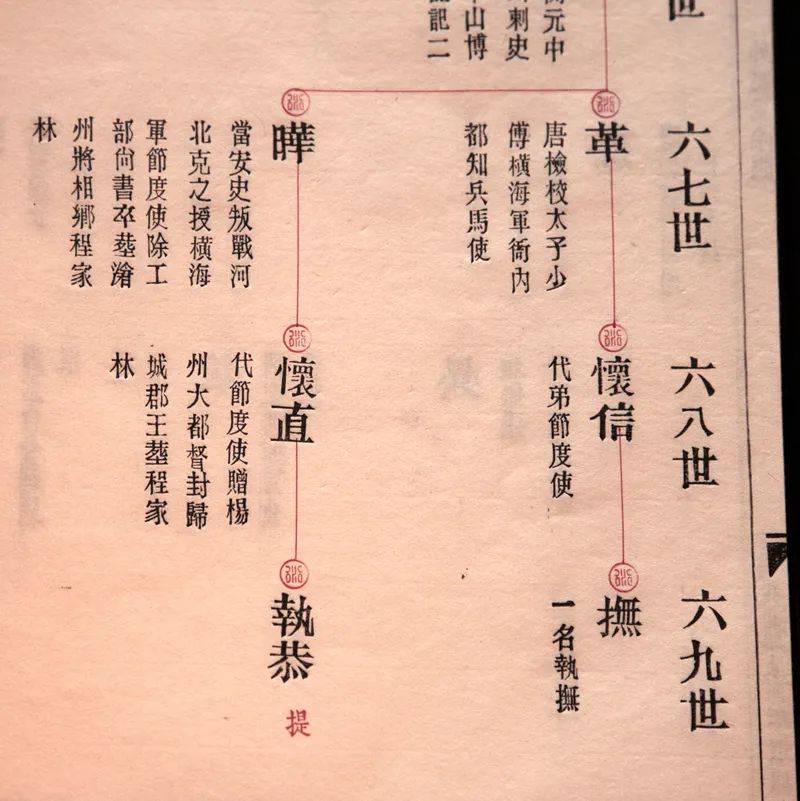 世
元中
刺史
山博
記二
六七世
革
唐檢校太子少
傅橫海軍衙內
都知兵馬使
曄
當安史叛戰河
北克之授橫海
軍節度使除工
部尚書卒塟滄
州將相鄉程家
林
六八世
懷信
代弟節度使
懷直
代節度使贈楊
州大都督封歸
城郡王塟程家
林
六九世
撫
一名執撫
執恭
提